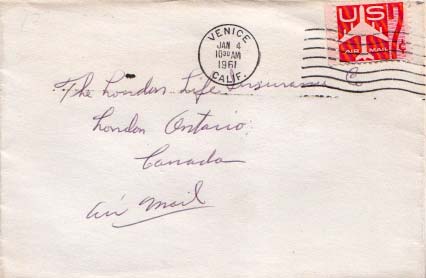 VENICE
JAN 4
10 30 AM
1961
CALIF.
US
AIR MAIL
7¢
The London Life Insurance Co
London Ontario
Canada
Air Mail